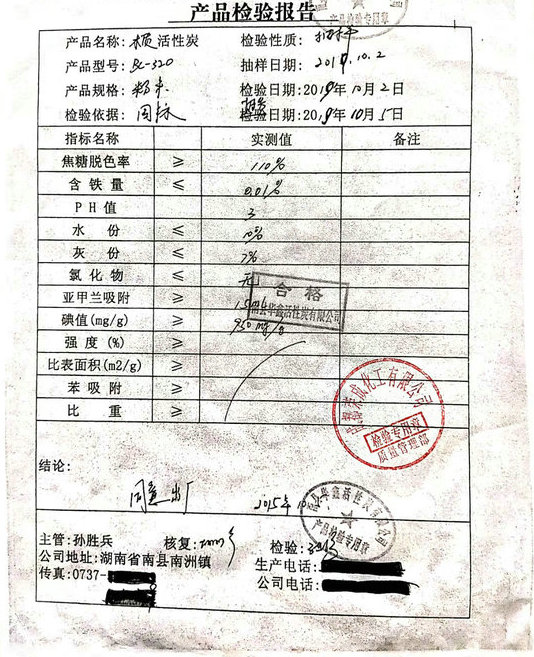 产品检验报告
产品检验专用章
产品名称: 木质活性炭 检验性质: 抽样
产品型号: 抽样日期: 2019.10.2
产品规格: 粉末 检验日期:2019年10月2日
检验依据: 国标 检验日期:2019年10月5日
指标名称 实测值 备注
焦糖脱色率 ≥ 110%
含铁量 ≤ 0.01%
PH值 3
水份 ≤ 10%
灰份 ≤ 7%
氯化物 ≤ 无
合格
亚甲兰吸附 ≥
县华鑫活性炭有限公司
碘值(mg/g) ≥ 950mg/g
强度(%) ≥
比表面积(m2/g) ≥
苯吸附 ≥
比重 ≥
化工有限公司
检验专用章
质量管理部
结论:
同意出厂 2015年10
县华鑫活性炭有限公司
产品检验专用章
主管:孙胜兵 核复: 检验:
公司地址:湖南省南县南洲镇 生产电话:
传真:0737- 公司电话: